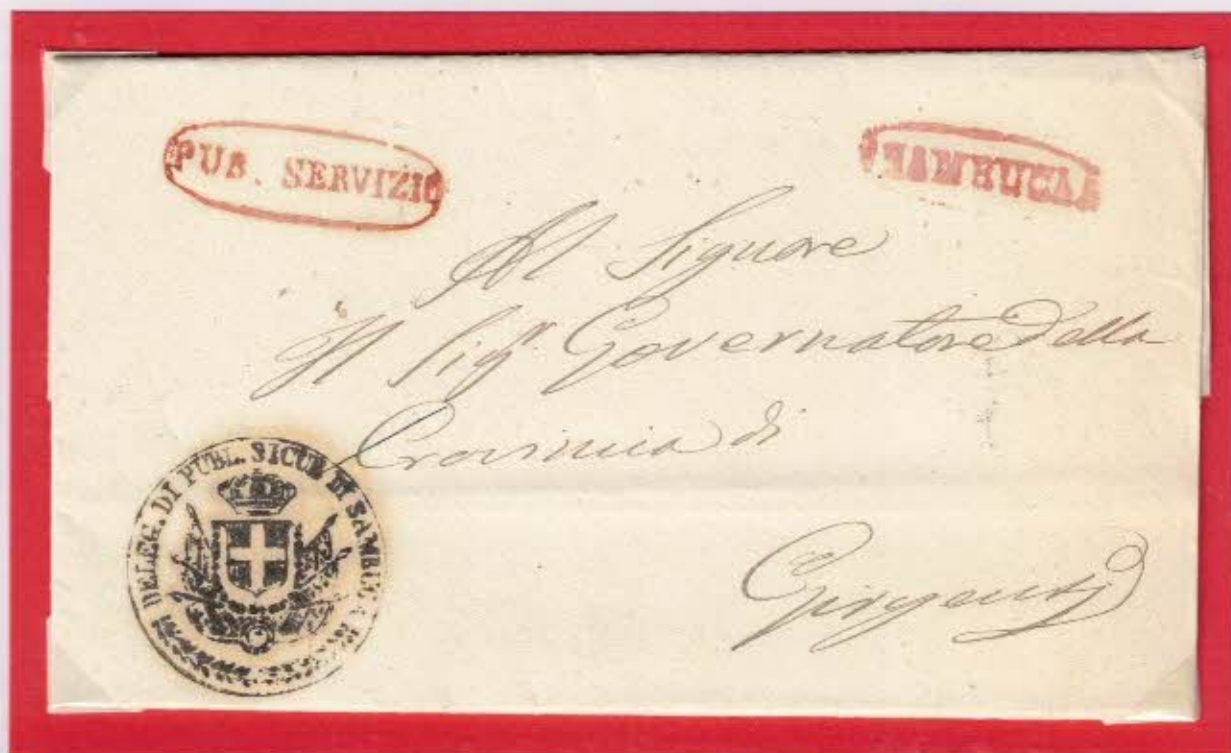 PUB. SERVIZIO
SAMBUCA
Al Signore
Il Sigr Governatore della
Provincia di
Girgenti
DELEG. DI PUBL. SICUR. DI SAMBUCA